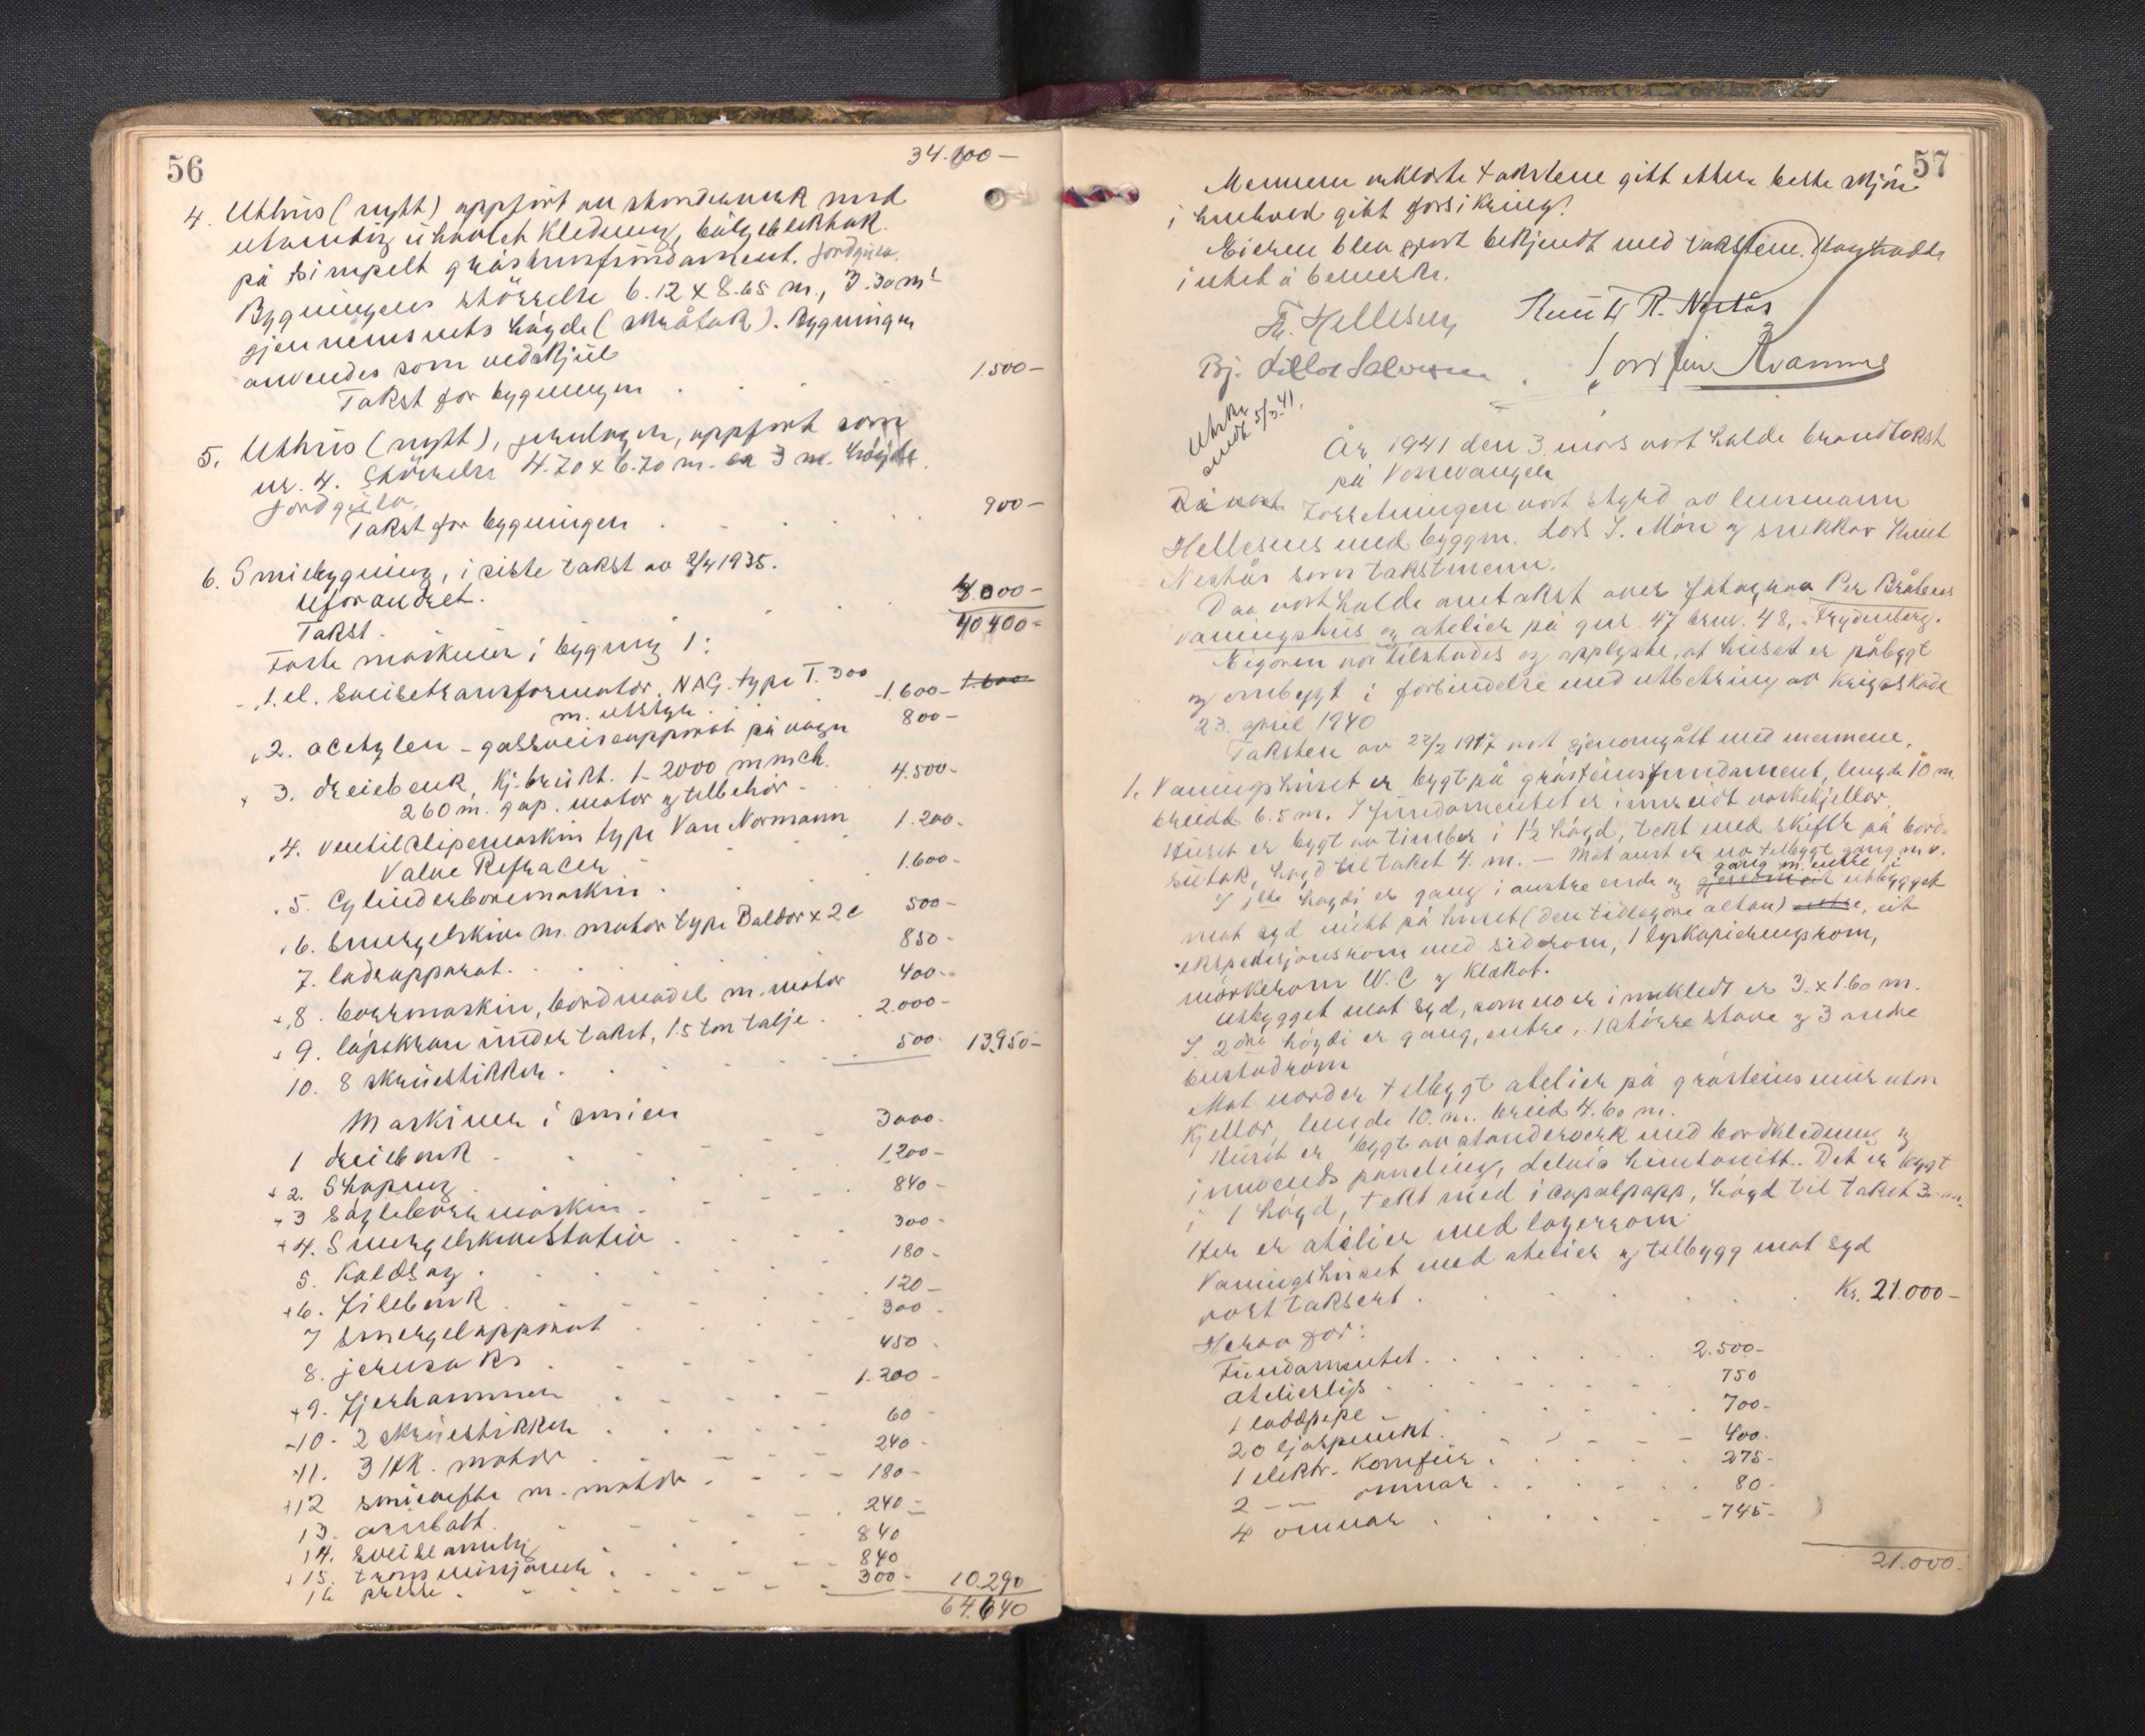 56
34.100 —
4. Uthus (nytt) oppført av stenderverk med
utvendig uhøvlet kledning, bølgeblektak
på simpelt gråsteinsfundament. Jordgulv.
Bygningens størrelse 6.12 x 8.65 m., 3.30 m
gjennemsnits høgde (skråtak). Bygningen
anvendes som vedskjul
Takst for bygningen . . . 1.500 —
5. Uthus (nytt), jernlager, oppført som
nr. 4. Størrelse 4.70 x 6.70 m. ca 3 m. høyde.
Jordgulv.
Takst for bygningen . . . 900 —
6. Smiebygning, i siste takst av 2/4 1935.
Uforandret.
Takst . . . 000 —
40 400 —
Faste maskiner i bygning 1:
1. el. sveisetransformator. NAG. type T. 300
m. utstyr . . 1.600 — 1.600
2. acetylen - gassveiseapparat på vogn 800 —
3. dreiebenk, Kj. brukt. 1 - 2000 m mch.
260 m. gap. motor og tilbehør - 4.500 -
4. ventilslipemaskin type Van Normann
Valve Refracer - 1.200 -
5. Cylinderboremaskin . 1.600 -
6. Smergelskive m. motor type Baldor x 2 c 500 —
7. ladeapparat. . . 850 -
8. boremaskin, bordmodel m. motor 400 -
9. løpekran under taket, 1.5 ton talje . . 2.000 -
10. 8 skruestikker . . . 500 - 13.950 —
Maskiner i smien
1 dreibenk . . . 3000 -
2. Shaping . . . 1.200 —
3 søyleboremaskin - 840 -
4. Smergelskivestativ . . 300 -
5. Kaldsag . . . 180 -
6. Filebenk . . . 120 —
7 smergelapparat . . . 300 -
8. jernsaks . . . 450 -
9. Fjerhammer . . . 1.200 -
10 - 2 skruestikker . . . 60 -
11. 3 HK. motor . . . 240 -
12 smievifte m. motor . . . 180 -
13. ambolt . . . 240 —
14. sveiseanlegg . . . 840
15. transmisjoner . . . 840
16 presse . . . 300 - 10.290
64.640
57
Mennene erklærte takstene gitt etter beste skjøn
i henhold gitt forsikring.
Eieren blev gjort bekjendt med takstene. Han hadde
intet å bemerke.
H. Hellesnes Knut R. Nestås
Bj. Lilletvedt Salvesen Lars Kvamme
Utskr.
sendt 5/3.41.
År 1941 den 3. mars vart halde brandtakst
på Vossevangen
Då vart Forretningen vart styrd av lensmann
Hellesnes med byggm. Lars S. Møn og snekkar Knut
Nestås som takstmenn.
Daa vart halde omtakst over fotograf Per Bråtens
vaningshus og atelier på gnr. 47 brnr. 48, Frydenberg.
Eigaren var tilstades og opplyste, at huset er påbygt
og ombygt i forbindelse med utbetring av krigsskade
23. april 1940
Taksten av 22/2 1917 vart gjenomgått med mennene.
1. Vaningshuset er bygt på gråsteinsfundament, lengde 10 m.
breidd 6.5 m. I fundamentet er innreidt vaskekjellar.
Huset er bygt av timber i 1½ høgd, tekt med skifer på bord-
sutak, høgd til taket 4. m. — Mot aust er no tilbygt gang m. v.
I 1ste høgdi er gang i austre ende og gang m. entre i utbygget
mot syd midt på huset (den tidlegare altan) entre, eit
ekspedisjonsrom med siderom, 1 lyskopieringsrom,
mørkerom W.C og klækot.
Utbygget mot syd, som no er innkledt er 3. x 1.60 m.
I 2dre høgdi er gang, entre, 1 større stove og 3 andre
bustadrom
Mot norder tilbygt atelier på gråsteinsmur uten
kjellar, lengde 10. m. breid 4.60 m.
Huset er bygt av standerverk med bordkledning og
innvends paneling, delvis huntonitt. Det er bygt
i 1 høgd, tekt med icopalpapp, høgd til taket 3. m.
Her er atelier med lagerrom
Vaningshuset med atelier og tilbygg mot syd
vart taksert . . . Kr. 21.000 —
Herav for:
Fundamentet . . . 2.500 —
atelierlys . . . 750
1 loddpipe . . . 700 -
20 ljospunkt . . . 400 -
1 elektr. komfur . . . 275 -
2 — omnar . . . 80 -
4 omnar . . . 745 -
21.000 -